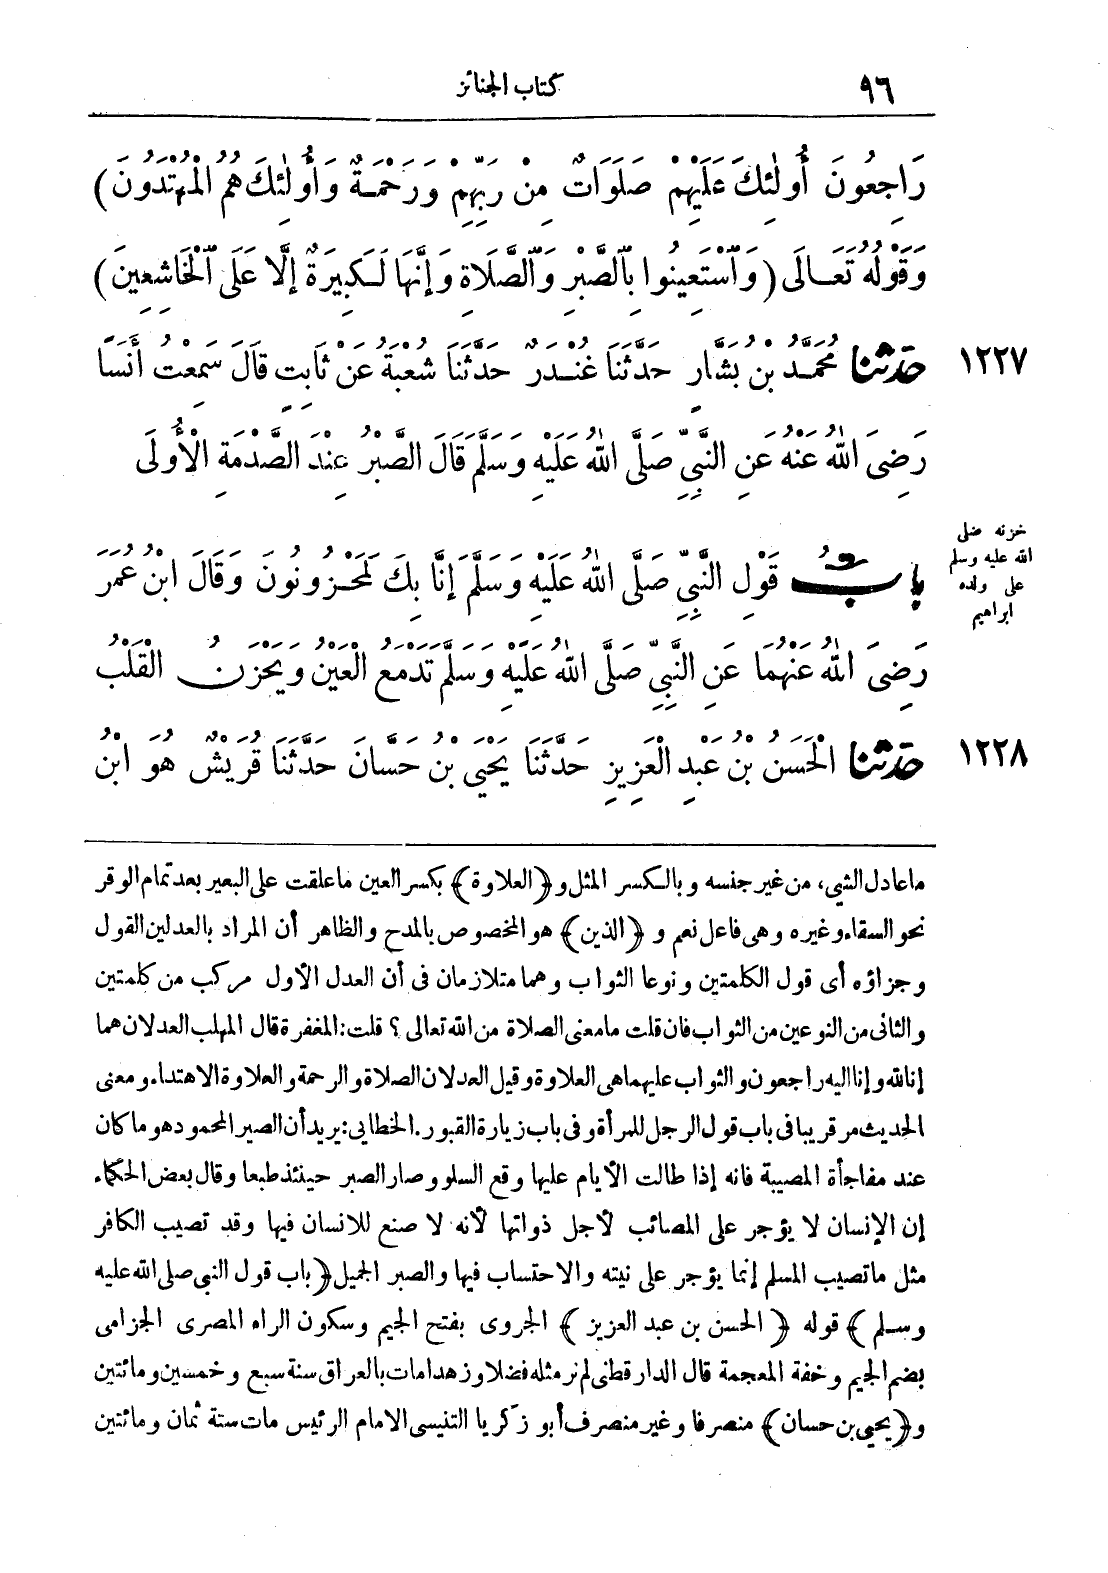 ٩٦
كتاب الجنائز
رَاجِعُونَ أُولَئِكَ عَلَيْهِمْ صَلَوَاتٌ مِنْ رَبِّهِمْ وَرَحْمَةٌ وَأُولَئِكَ هُمُ الْمُهْتَدُونَ)
وَقَوْلُهُ تَعَالَى (وَاسْتَعِينُوا بِالصَّبْرِ وَالصَّلَاةِ وَإِنَّهَا لَكَبِيرَةٌ إِلَّا عَلَى الْخَاشِعِينَ)
١٢٢٧ حَدَّثَنَا مُحَمَّدُ بْنُ بَشَّارٍ حَدَّثَنَا غُنْدَرٌ حَدَّثَنَا شُعْبَةُ عَنْ ثَابِتٍ قَالَ سَمِعْتُ أَنَسًا
رَضِىَ اللهُ عَنْهُ عَنِ النَّبِىِّ صَلَّى اللهُ عَلَيْهِ وَسَلَّمَ قَالَ الصَّبْرُ عِنْدَ الصَّدْمَةِ الْأُولَى
خزنه صلى
الله عليه وسلم
على ولده
ابراهيم
بَابُ قَوْلِ النَّبِىِّ صَلَّى اللهُ عَلَيْهِ وَسَلَّمَ إِنَّا بِكَ لَمَحْزُونُونَ وَقَالَ ابْنُ عُمَرَ
رَضِىَ اللهُ عَنْهُمَا عَنِ النَّبِىِّ صَلَّى اللهُ عَلَيْهِ وَسَلَّمَ تَدْمَعُ الْعَيْنُ وَيَحْزَنُ الْقَلْبُ
١٢٢٨ حَدَّثَنَا الْحَسَنُ بْنُ عَبْدِ الْعَزِيزِ حَدَّثَنَا يَحْيَى بْنُ حَسَّانَ حَدَّثَنَا قُرَيْشٌ هُوَ ابْنُ
ماعادل الشىء من غير جنسه وبالكسر المثل و﴿العلاوة﴾ بكسر العين ماعلقت على البعير بعد تمام الوقر
نحو السقاء وغيره وهى فاعل نعم و ﴿الذين﴾ هو المخصوص بالمدح والظاهر أن المراد بالعدلين القول
وجزاؤه أى قول الكلمتين ونوعا الثواب وهما متلازمان فى أن العدل الأول مركب من كلمتين
والثانى من النوعين من الثواب فان قلت مامعنى الصلاة من الله تعالى؟ قلت: المغفرة قال المهلب العدلان هما
إنا لله وإنا اليه راجعون والثواب عليهما هى العلاوة وقيل العدلان الصلاة والرحمة والعلاوة الاهتداء ومعنى
الحديث مر قريبا فى باب قول الرجل للمرأة وفى باب زيارة القبور. الخطابى: يريد أن الصبر المحمود هو ما كان
عند مفاجأة المصيبة فانه إذا طالت الأيام عليها وقع السلو وصار الصبر حينئذ طبعا وقال بعض الحكماء
إن الإنسان لا يؤجر على المصائب لأجل ذواتها لأنه لا صنع للانسان فيها وقد تصيب الكافر
مثل ماتصيب المسلم إنما يؤجر على نيته والاحتساب فيها والصبر الجميل ﴿باب قول النبى صلى الله عليه
وسلم﴾ قوله ﴿الحسن بن عبد العزيز﴾ الجروى بفتح الجيم وسكون الراء المصرى الجزامى
بضم الجيم وخفة المعجمة قال الدارقطنى لم نر مثله فضلا وزهدا مات بالعراق سنة سبع وخمسين ومائتين
و﴿يحيى بن حسان﴾ منصرفا وغير منصرف أبو زكريا التنيسى الامام الرئيس مات سنة ثمان ومائتين